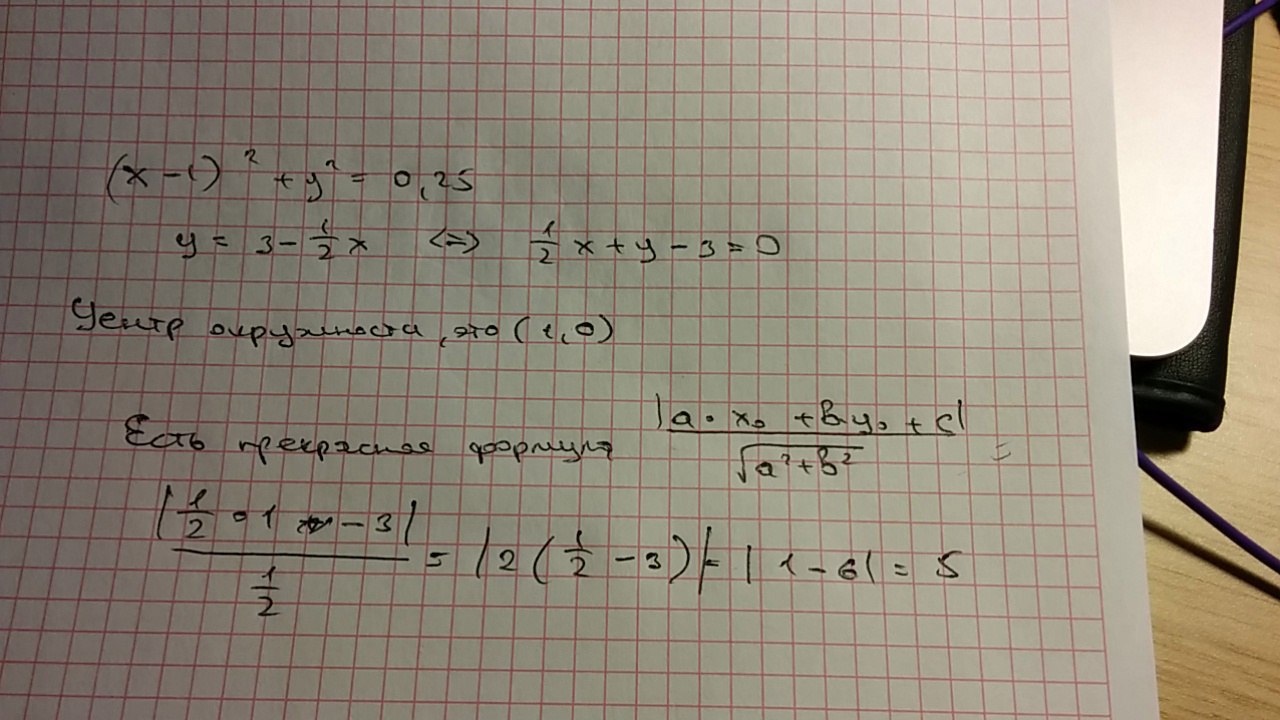 (x-1)² + y² = 0,25
y = 3 - 1/2 x <=> 1/2 x + y - 3 = 0
Центр окружности, это (1,0)
Есть прекрасная формула |a·x₀ + b·y₀ + c| / √(a²+b²) =
|1/2 · 1 - 3| / (1/2) = |2(1/2 - 3)| = |1-6| = 5